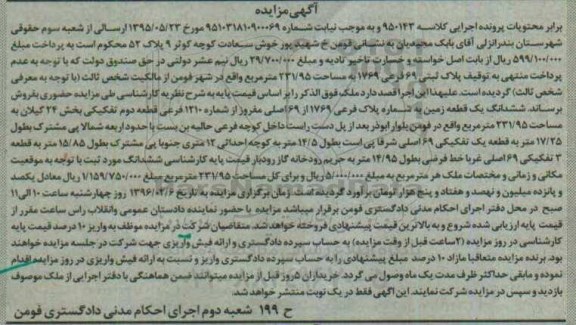 آگهی مزایده
برابر محتویات پرونده اجرایی کلاسه ۹۵۰۱۴۳ و به موجب نیابت شماره ۹۵۱۰۳۱۸۱۰۹۰۰۰۶۹ مورخ ۱۳۹۵/۰۵/۲۳ ارسالی از شعبه سوم حقوقی
شهرستان بندرانزلی آقای بابک محبدیان به نشانی فومن خ شهید پور خوش سعادت کوچه کوثر ۹ پلاک ۵۲ محکوم است به پرداخت مبلغ
۵۹۹/۱۰۰/۰۰۰ ریال از بابت اصل خواسته و خسارت تاخیر تادیه و مبلغ ۲۹/۷۰۰/۰۰۰ ریال نیم عشر دولتی در حق صندوق دولت که با توجه به عدم
پرداخت منتهی به توقیف پلاک ثبتی ۶۹ فرعی ۱۷۶۹ به مساحت ۲۳۱/۹۵ مترمربع واقع در شهر فومن از مالکیت شخص ثالث (با توجه به معرفی
شخص ثالث) گردیده است. علیهذا این اجرا قصد دارد ملک فوق الذکر را بر اساس قیمت پایه به شرح نظریه کارشناسی طی مزایده حضوری بفروش
برساند. ششدانگ یک قطعه زمین به شماره پلاک فرعی ۱۷۶۹ از ۶۹ اصلی مفروز از شماره ۱۲۱۰ فرعی قطعه دوم تفکیکی بخش ۲۴ گیلان به
مساحت ۲۳۱/۹۵ مترمربع واقع در فومن بلوار ابوذر بعد از پل دست راست داخل کوچه فرعی حالیه بن بست با حدود اربعه شمالا پی مشترک بطول
۱۷/۲۵ متر به قطعه یک تفکیکی ۶۹ اصلی شرقا پی است بطول ۱۴/۵ متر به کوچه احداثی ۱۲ متری جنوبا پی مشترک بطول ۱۵/۸۵ متر به قطعه
۳ تفکیکی ۶۹ اصلی غربا خط فرضی بطول ۱۴/۹۵ متر به حریم رودخانه گاز رودبار قیمت پایه کارشناسی ششدانگ مورد ثبت با توجه به موقعیت
مکانی و زمانی و مختصات ملک هر متر مربع به مبلغ ۵/۰۰۰/۰۰۰ ریال و برای کل مساحت ۲۳۱/۹۵ مترمربع مبلغ ۱/۱۵۹/۷۵۰/۰۰۰ ریال معادل یکصد
و پانزده میلیون و نهصد و هفتاد و پنج هزار تومان برآورد گردیده است. زمان برگزاری مزایده به تاریخ ۱۳۹۶/۰۲/۰۶ روز چهارشنبه ساعت ۱۰ الی ۱۱
صبح در محل دفتر اجرای احکام مدنی دادگستری فومن برقرار میباشد مزایده با حضور نماینده دادستان عمومی وانقلاب راس ساعت مقرر از
قیمت پایه ارزیابی شده شروع و به بالاترین قیمت پیشنهادی فروخته خواهد شد. متقاضیان شرکت در مزایده موظف به واریز ۱۰ درصد قیمت پایه
کارشناسی در روز مزایده (۲ ساعت قبل از وقت مزایده) به حساب سپرده دادگستری و ارائه فیش واریزی جهت شرکت در جلسه مزایده خواهند
بود. برنده مزایده متعاقبا مازاد ۱۰ درصد مبلغ پیشنهادی را به حساب سپرده دادگستری واریز و نسبت به ارائه فیش واریزی در روز مزایده اقدام
نموده و مابقی حداکثر ظرف مدت یک ماه وصول می گردد. خریداران ۵ روز قبل از مزایده میتوانند ضمن هماهنگی با دفتر اجرا از ملک موصوف
بازدید و سپس در مزایده شرکت نمایند. این آگهی فقط در یک نوبت منتشر خواهد شد.
ح ۱۹۹ شعبه دوم اجرای احکام مدنی دادگستری فومن